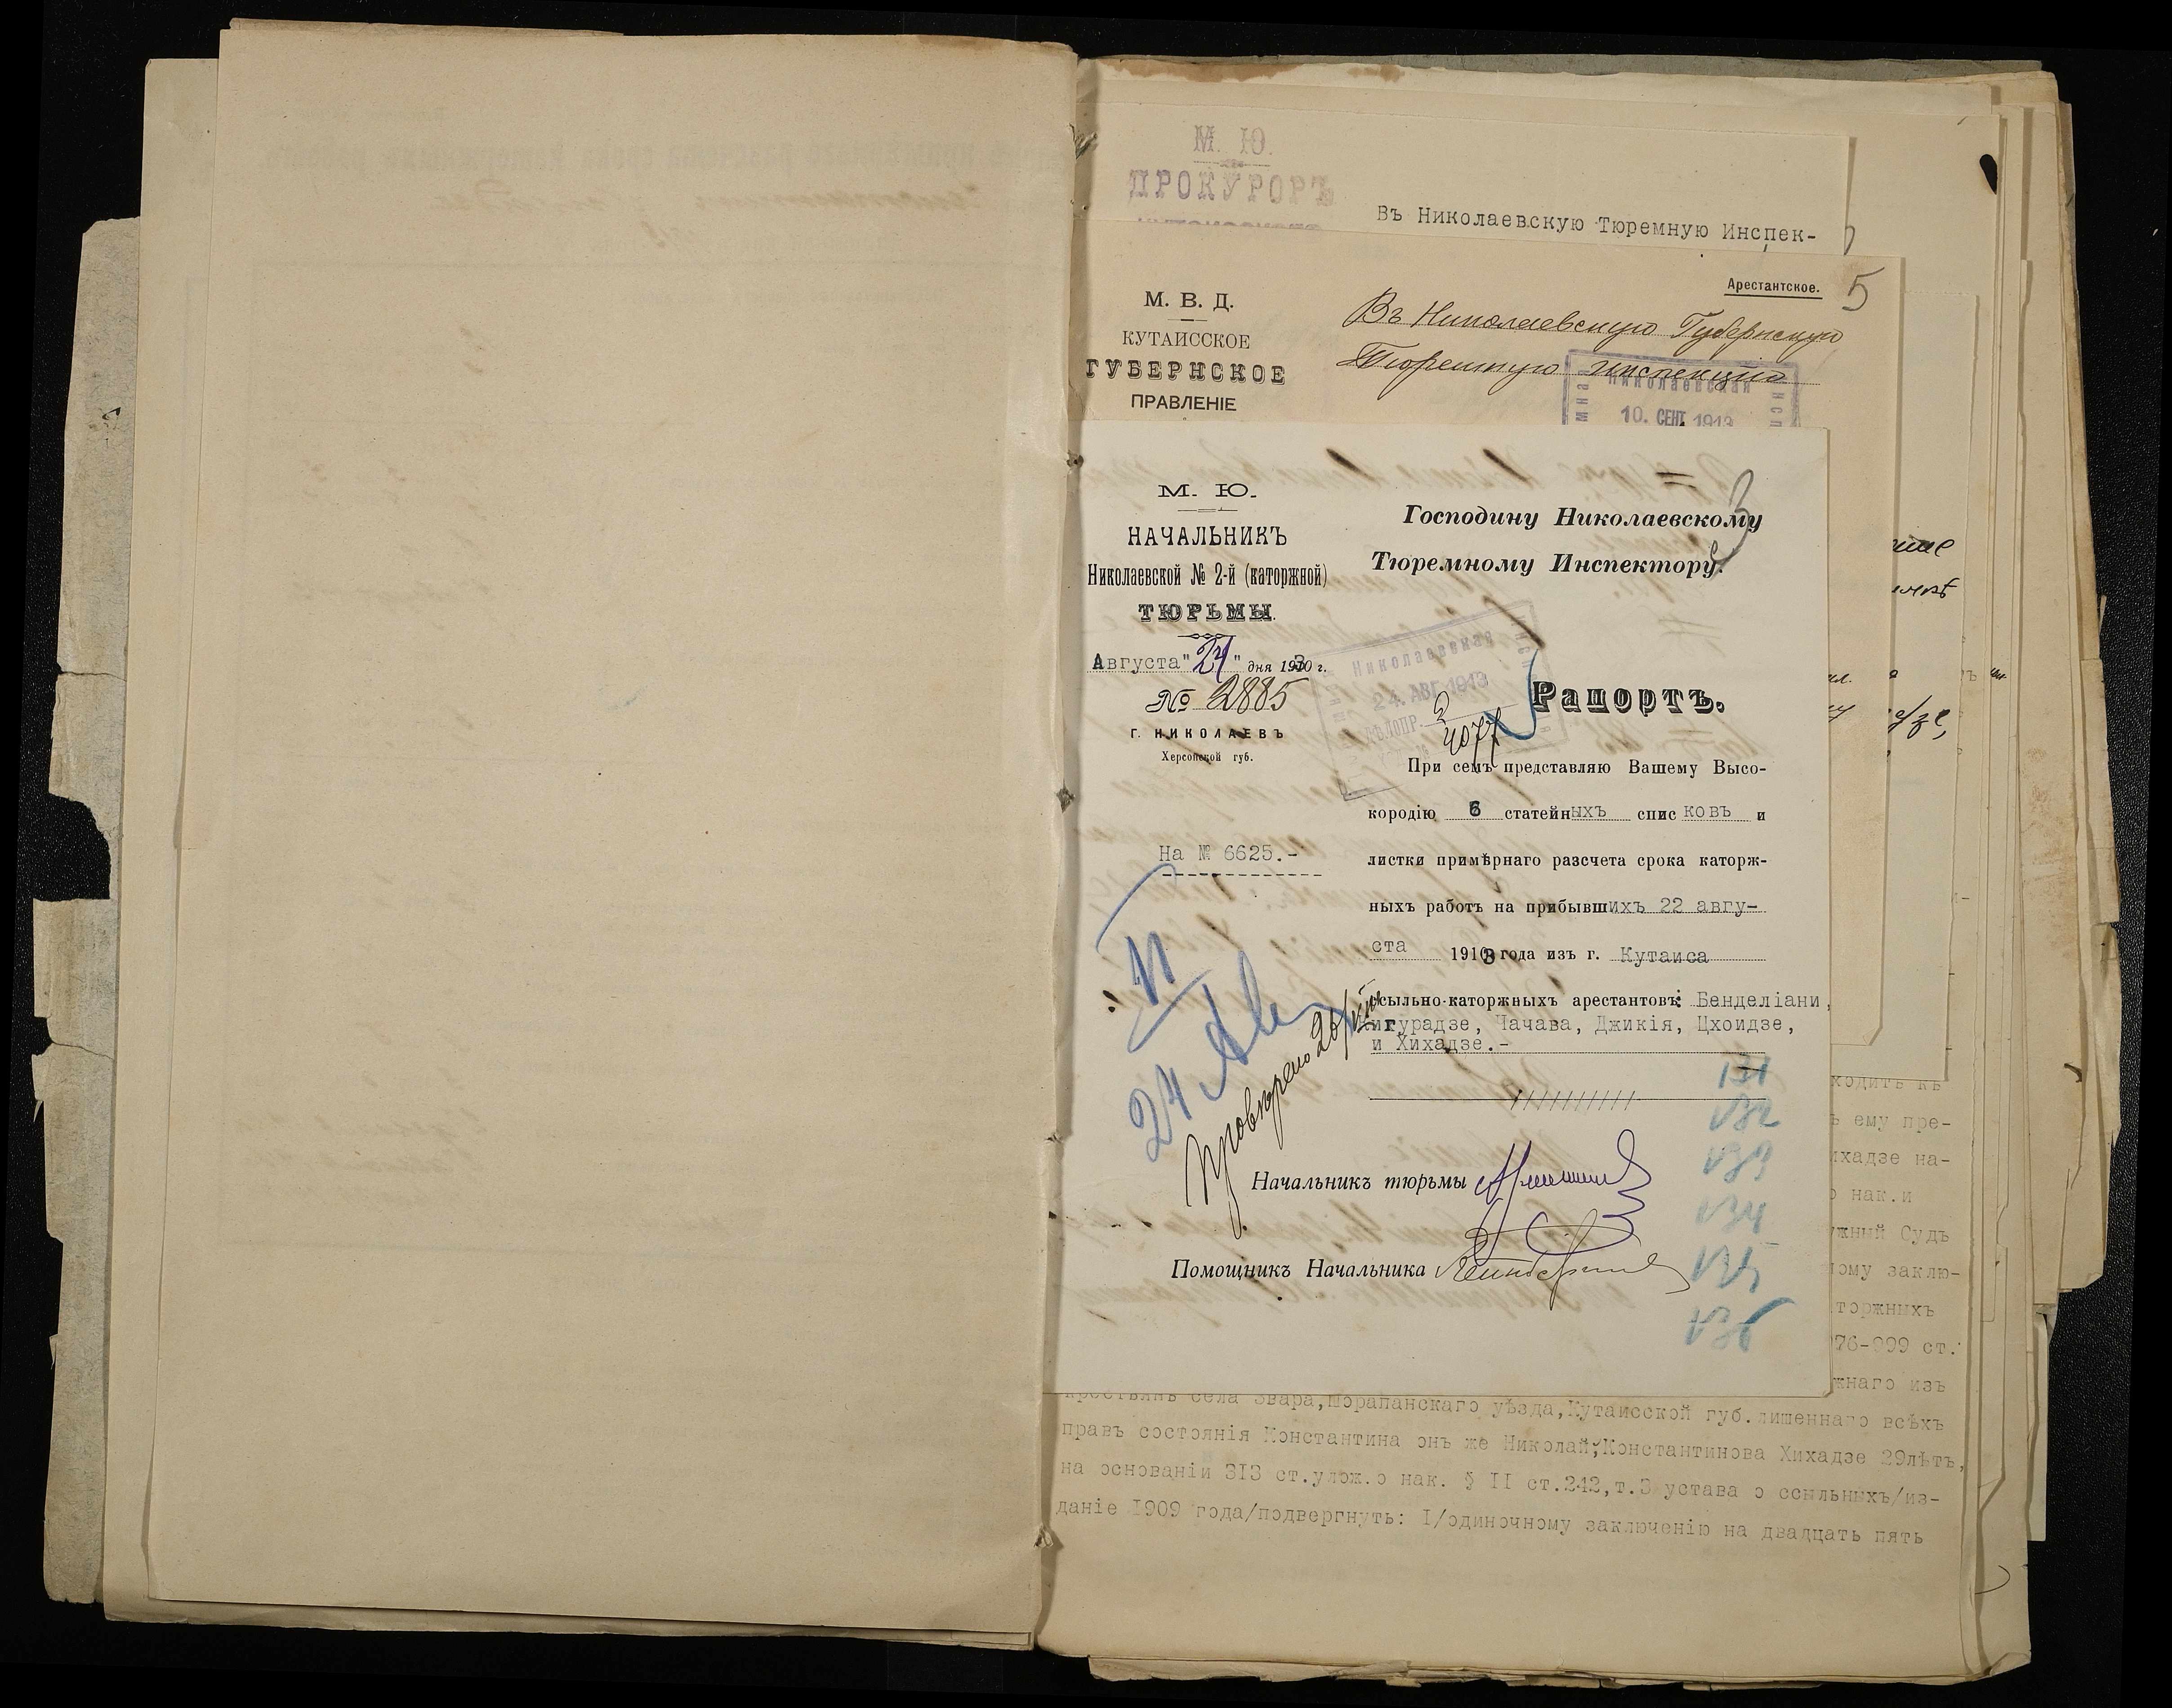 М. Ю.
ПРОКУРОРЪ
Въ Николаевскую Тюремную Инспек-
Арестантское. 5
М. В. Д.
КУТАИССКОЕ
ГУБЕРНСКОЕ
ПРАВЛЕНІЕ
Въ Николаевскую Губернскую
Тюремную инспекцію
Николаевская
10. СЕНТ. 1913
М. Ю.
НАЧАЛЬНИКЪ
Николаевской № 2-й (каторжной)
ТЮРЬМЫ.
Августа "24" дня 1913 г.
№ 2885
Г. НИКОЛАЕВЪ
Херсонской губ.
На № 6625.-
3
Господину Николаевскому
Тюремному Инспектору.
Николаевская
24. АВГ 1913
ДѢЛОПР. 2
4077
Рапортъ.
При семъ представляю Вашему Высо-
кородію 6 статейныхъ спис ковъ и
листки примѣрнаго разсчета срока каторж-
ныхъ работъ на прибывшихъ 22 авгу-
ста 1913 года изъ г. Кутаиса
ссыльно-каторжныхъ арестантовъ: Бенделіани,
Кигурадзе, Чачава, Джикія, Цхоидзе,
и Хихадзе.-
II
24 Авг
Провѣрено 26/VIII
131
132
133
134
135
136
Начальникъ тюрьмы
Помощникъ Начальника
ходить къ
ъ ему пре-
ихадзе на-
о нак. и
ужный Судъ
ному заклю-
торжныхъ
76-999 ст.
жнаго изъ
крестьянъ села Звара,Шорапанскаго уѣзда,Кутаисской губ.лишеннаго всѣхъ
правъ состоянія Константина онъ же Николай,Константинова Хихадзе 29лѣтъ,
на основаніи 313 ст.улож.о нак. § II ст.242,т.3 устава о ссыльныхъ/из-
даніе 1909 года/подвергнуть: I/одиночному заключенію на двадцать пять